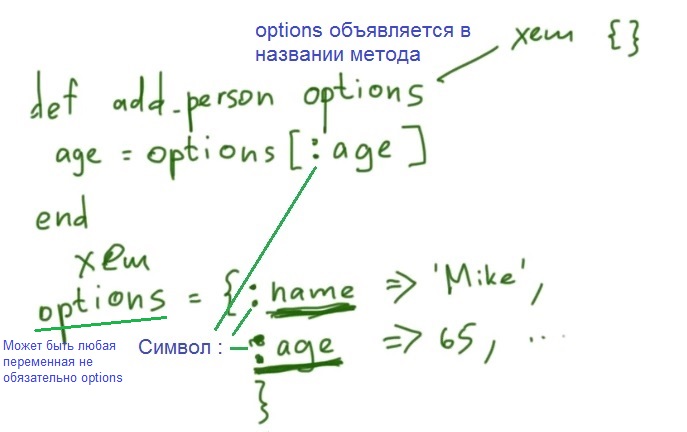 options объявляется в
названии метода
хеш {}
def add_person options
age = options[:age]
end
хеш
options = {:name => 'Mike',
Может быть любая
переменная не
обязательно options
Символ :
:age => 65, ...
}